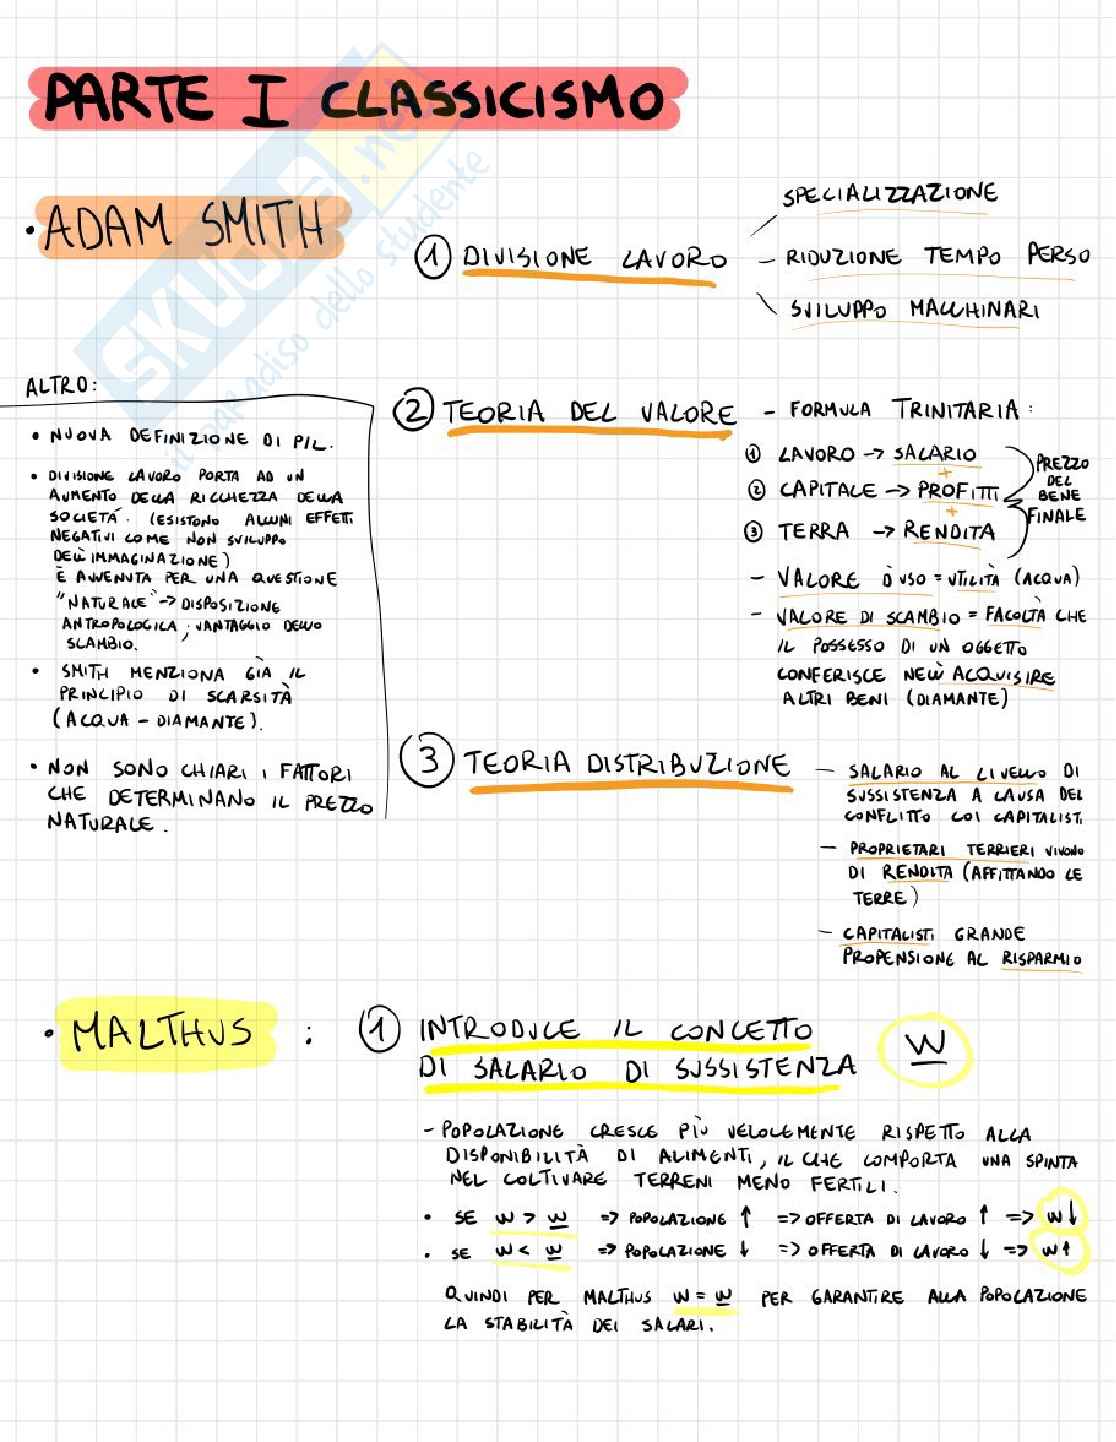 PARTE I CLASSICISMO
• ADAM SMITH
① DIVISIONE LAVORO
SPECIALIZZAZIONE
– RIDUZIONE TEMPO PERSO
SVILUPPO MACCHINARI
ALTRO:
• NUOVA DEFINIZIONE DI PIL.
• DIVISIONE LAVORO PORTA AD UN
AUMENTO DELLA RICCHEZZA DELLA
SOCIETÀ. (ESISTONO ALCUNI EFFETTI
NEGATIVI COME NON SVILUPPO
DELL'IMMAGINAZIONE)
È AVVENUTA PER UNA QUESTIONE
"NATURALE" -> DISPOSIZIONE
ANTROPOLOGICA, VANTAGGIO DELLO
SCAMBIO.
• SMITH MENZIONA GIÀ IL
PRINCIPIO DI SCARSITÀ
(ACQUA – DIAMANTE).
• NON SONO CHIARI I FATTORI
CHE DETERMINANO IL PREZZO
NATURALE.
② TEORIA DEL VALORE – FORMULA TRINITARIA:
① LAVORO -> SALARIO
+
② CAPITALE -> PROFITTI
+
③ TERRA -> RENDITA
PREZZO
DEL
BENE
FINALE
– VALORE D'USO = UTILITÀ (ACQUA)
– VALORE DI SCAMBIO = FACOLTÀ CHE
IL POSSESSO DI UN OGGETTO
CONFERISCE NELL'ACQUISIRE
ALTRI BENI (DIAMANTE)
③ TEORIA DISTRIBUZIONE
– SALARIO AL LIVELLO DI
SUSSISTENZA A CAUSA DEL
CONFLITTO COI CAPITALISTI
– PROPRIETARI TERRIERI VIVONO
DI RENDITA (AFFITTANDO LE
TERRE)
– CAPITALISTI GRANDE
PROPENSIONE AL RISPARMIO
• MALTHUS : ① INTRODUCE IL CONCETTO
DI SALARIO DI SUSSISTENZA w̲
– POPOLAZIONE CRESCE PIÙ VELOCEMENTE RISPETTO ALLA
DISPONIBILITÀ DI ALIMENTI, IL CHE COMPORTA UNA SPINTA
NEL COLTIVARE TERRENI MENO FERTILI.
• SE w > w̲ => POPOLAZIONE ↑ => OFFERTA DI LAVORO ↑ => w↓
• SE w < w̲ => POPOLAZIONE ↓ => OFFERTA DI LAVORO ↓ => w↑
QUINDI PER MALTHUS w = w̲ PER GARANTIRE ALLA POPOLAZIONE
LA STABILITÀ DEI SALARI.
SKUOLA.net
il paradiso dello studente